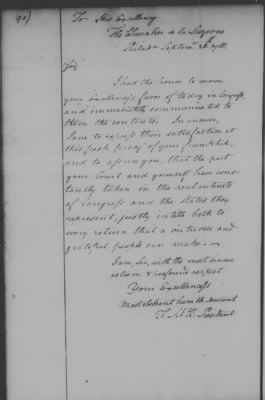 To His Excellency
The Chevalier de la Luzerne
Philada Septemr 26. 1781
Sir,
I had the honor to receive
your Excellency's favor of today in Congress
and immediately communicated to
them the contents. In answer,
I am to express their satisfaction at
this fresh proof of your friendship,
and to assure you, that the part
your Court and yourself have con-
stantly taken in the real interests
of Congress and the States they
represent, justly entitle both to
every return that a virtuous and
grateful people can make.
I am, Sir, with the most sincere
esteem & profound respect
Your Excellency's
Most obedient humble servant
T. M. K. President